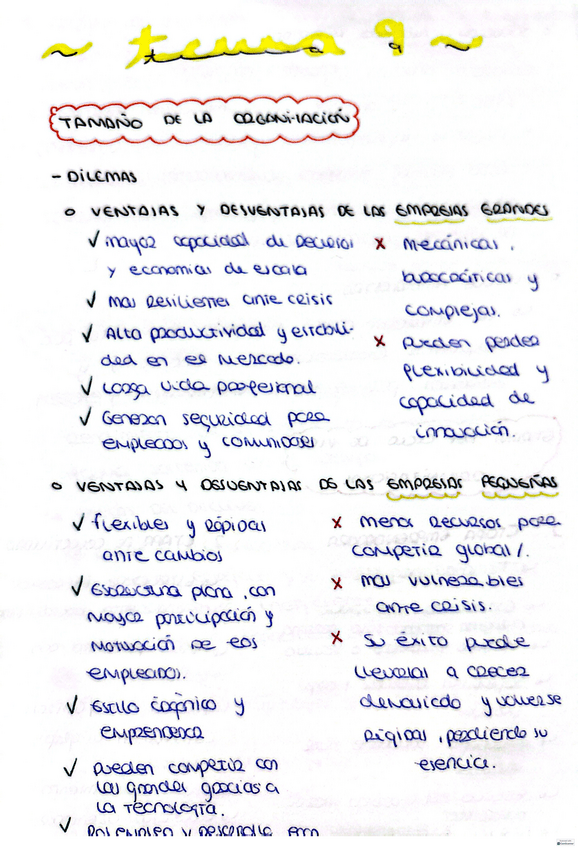 ~ tema 9 ~
TAMAÑO DE LA ORGANIZACIÓN
- DILEMAS
o VENTAJAS Y DESVENTAJAS DE LAS EMPRESAS GRANDES
✓ Mayor capacidad de recursos
y economías de escala
✓ Mas resilientes ante crisis
✓ Alta productividad y estabili-
dad en el mercado.
✓ Larga vida profesional
✓ Generan seguridad para
empleados y comunidades
x Mecánicas,
burocráticas y
complejas.
x Pueden perder
flexibilidad y
capacidad de
innovación.
o VENTAJAS Y DESVENTAJAS DE LAS EMPRESAS PEQUEÑAS
✓ flexibles y rápidas
ante cambios
✓ Estructura plana, con
mayor participación y
motivación de los
empleados.
✓ Estilo orgánico y
emprendedor
✓ Pueden competir con
las grandes gracias a
la tecnología.
x menos recursos para
competir global/.
x mas vulnerables
ante crisis.
x Su éxito puede
llevarlas a crecer
demasiado y volverse
rígidas, perdiendo su
esencia.